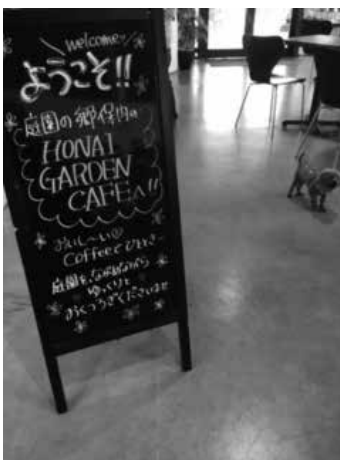 welcome
ようこそ!!
庭園の郷保内の
HONAI
GARDEN
CAFEへ!!
おいし〜い
Coffeeでひといき〜
庭園をながめながら
ゆっくりと
おくつろぎくださいませ